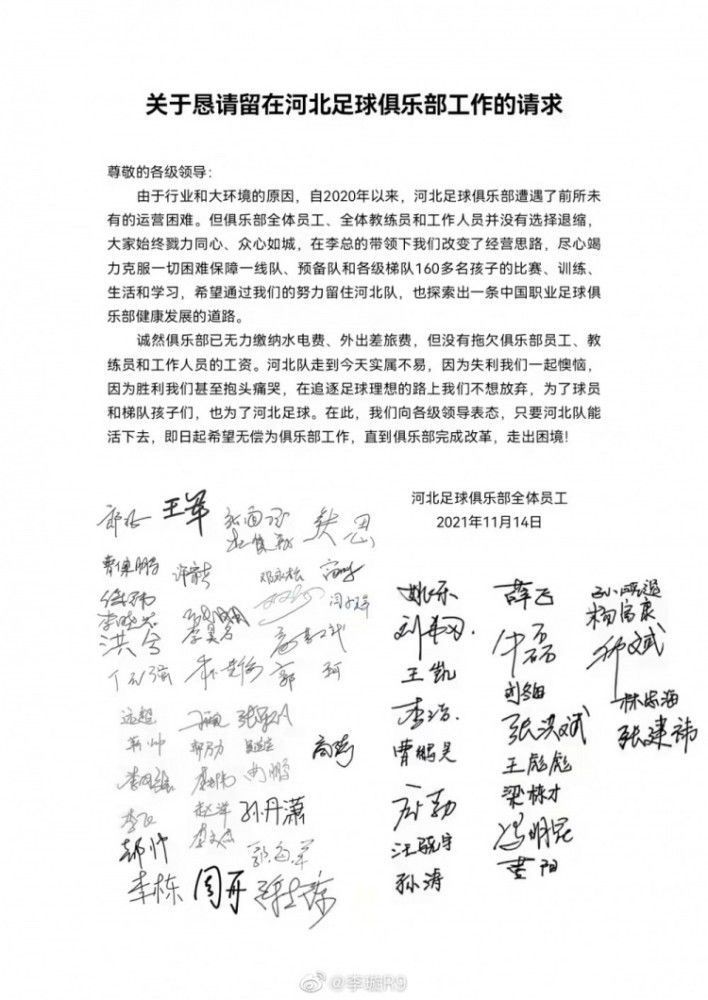 关于恳请留在河北足球俱乐部工作的请求
尊敬的各级领导：
由于行业和大环境的原因，自2020年以来，河北足球俱乐部遭遇了前所未
有的运营困难。但俱乐部全体员工、全体教练员和工作人员并没有选择退缩，
大家始终戮力同心、众心如城，在李总的带领下我们改变了经营思路，尽心竭
力克服一切困难保障一线队、预备队和各级梯队160多名孩子的比赛、训练、
生活和学习，希望通过我们的努力留住河北队，也探索出一条中国职业足球俱
乐部健康发展的道路。
诚然俱乐部已无力缴纳水电费、外出差旅费，但没有拖欠俱乐部员工、教
练员和工作人员的工资。河北队走到今天实属不易，因为失利我们一起懊恼，
因为胜利我们甚至抱头痛哭，在追逐足球理想的路上我们不想放弃，为了球员
和梯队孩子们，也为了河北足球。在此，我们向各级领导表态，只要河北队能
活下去，即日起希望无偿为俱乐部工作，直到俱乐部完成改革，走出困境！
河北足球俱乐部全体员工
2021年11月14日
王军
曹保鹏
姚乐
薛飞
杨富康
李晓芯
洪兮
李昊名
王凯
牛磊
郭珂
李浩
林忠海
远超
高嵩
曹鹏昊
张洪斌
张建祎
王彪彪
赵洋
孙丹潇
梁栋才
郝帅
汪骁宇
冯明昆
李栋
周开
孙涛
董阳
@李璇R9